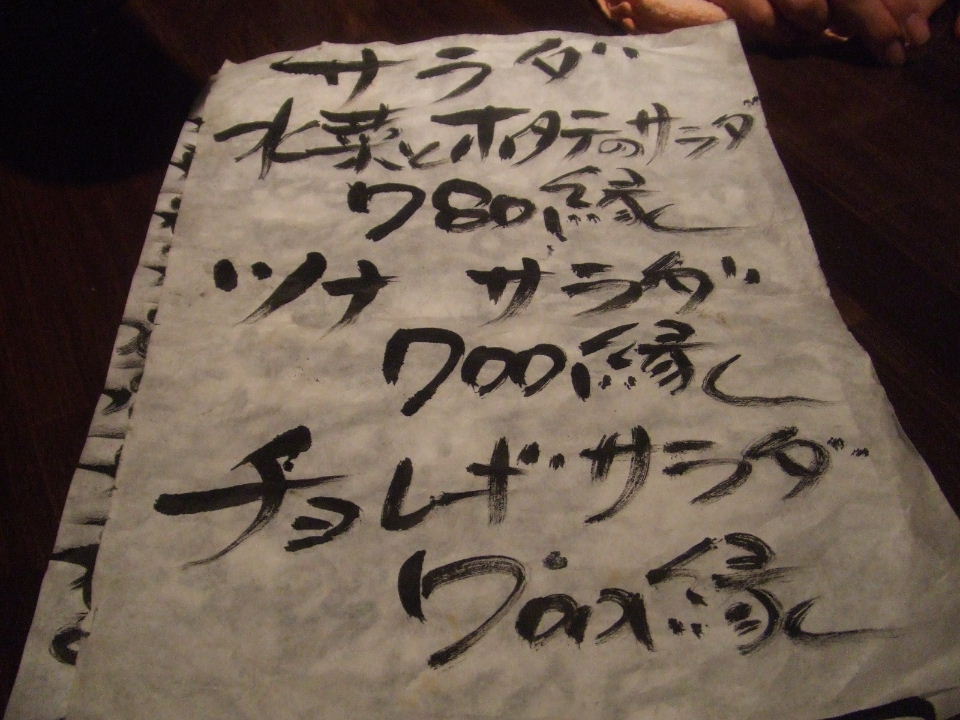 サラダ
水菜とホタテのサラダ
780縁
ツナ サラダ
700縁
チョレギサラダ
700縁